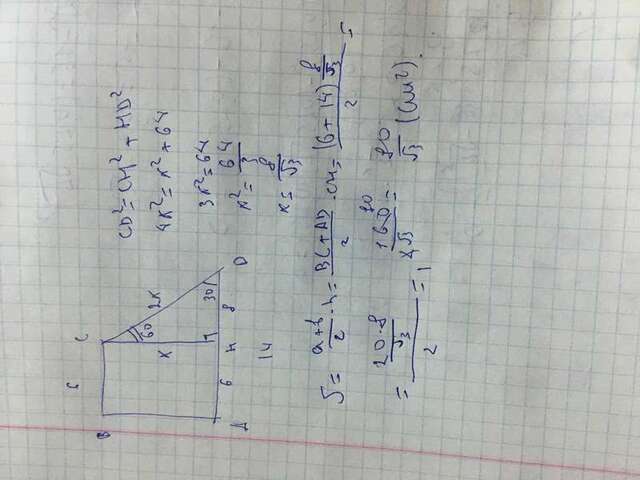 B
6
C
60
2x
x
30
A
6
H
8
D
14
CD²=CH²+HD²
4x²=x²+64
3x²=64
x²=64/3
x=8/√3
S=(a+b)/2·h=(BC+AD)/2·CH=(6+14)8/√3/2=
=20·8/√3/2=160/2√3=80/√3 (см²).
80